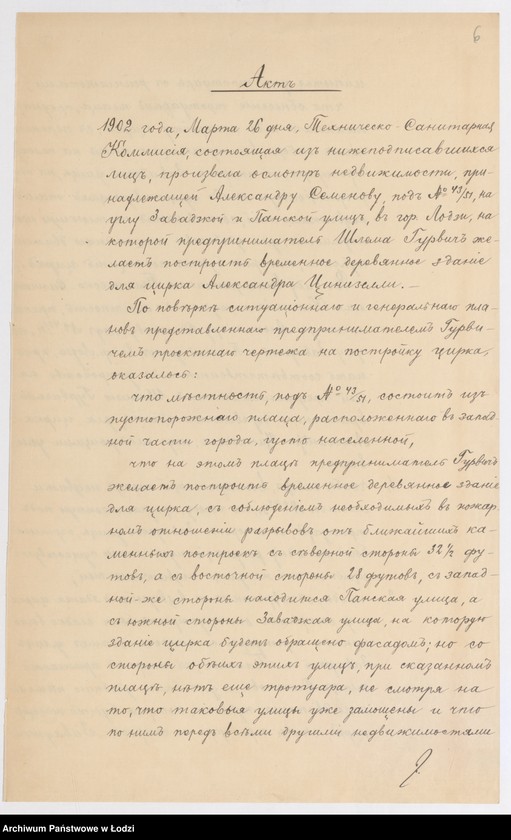 6
Актъ
1902 года, Марта 26 дня, Техническо-Санитарная
Коммисія, состоящая изъ нижеподписавшихся
лицъ, произвела осмотръ недвижимости, при-
надлежащей Александру Семенову, подъ № 43/51, на
углу Завадзкой и Панской улицъ, въ гор. Лодзи, на
которой предприниматель Шлема Гурвичъ же-
лаетъ построить временное деревянное зданіе
для цирка Александра Цинизелли. –
По повѣркѣ ситуаціоннаго и генеральнаго пла-
новъ представленнаго предпринимателемъ Гурви-
чемъ проектнаго чертежа на постройку цирка,
оказалось:
что мѣстность, подъ № 43/51, состоитъ изъ
пустопорожняго плаца, расположеннаго въ запад-
ной части города, густо населенной,
что на этомъ плацѣ предприниматель Гурвичъ
желаетъ построить временное деревянное зданіе
для цирка, съ соблюденіемъ необходимыхъ въ пожар-
номъ отношеніи разрывовъ отъ ближайшихъ ка-
менныхъ построекъ съ сѣверной стороны 32 1/2 фу-
товъ, а съ восточной стороны 28 футовъ, съ запад-
ной-же стороны находится Панская улица, а
съ южной стороны Завадзкая улица, на которую
зданіе цирка будетъ обращено фасадомъ; но со
стороны обѣихъ этихъ улицъ, при сказанномъ
плацѣ, нѣтъ еще тротуара, не смотря на
то, что таковыя улицы уже замощены и что
по нимъ передъ всѣми другими недвижимостями
Archiwum Państwowe w Łodzi